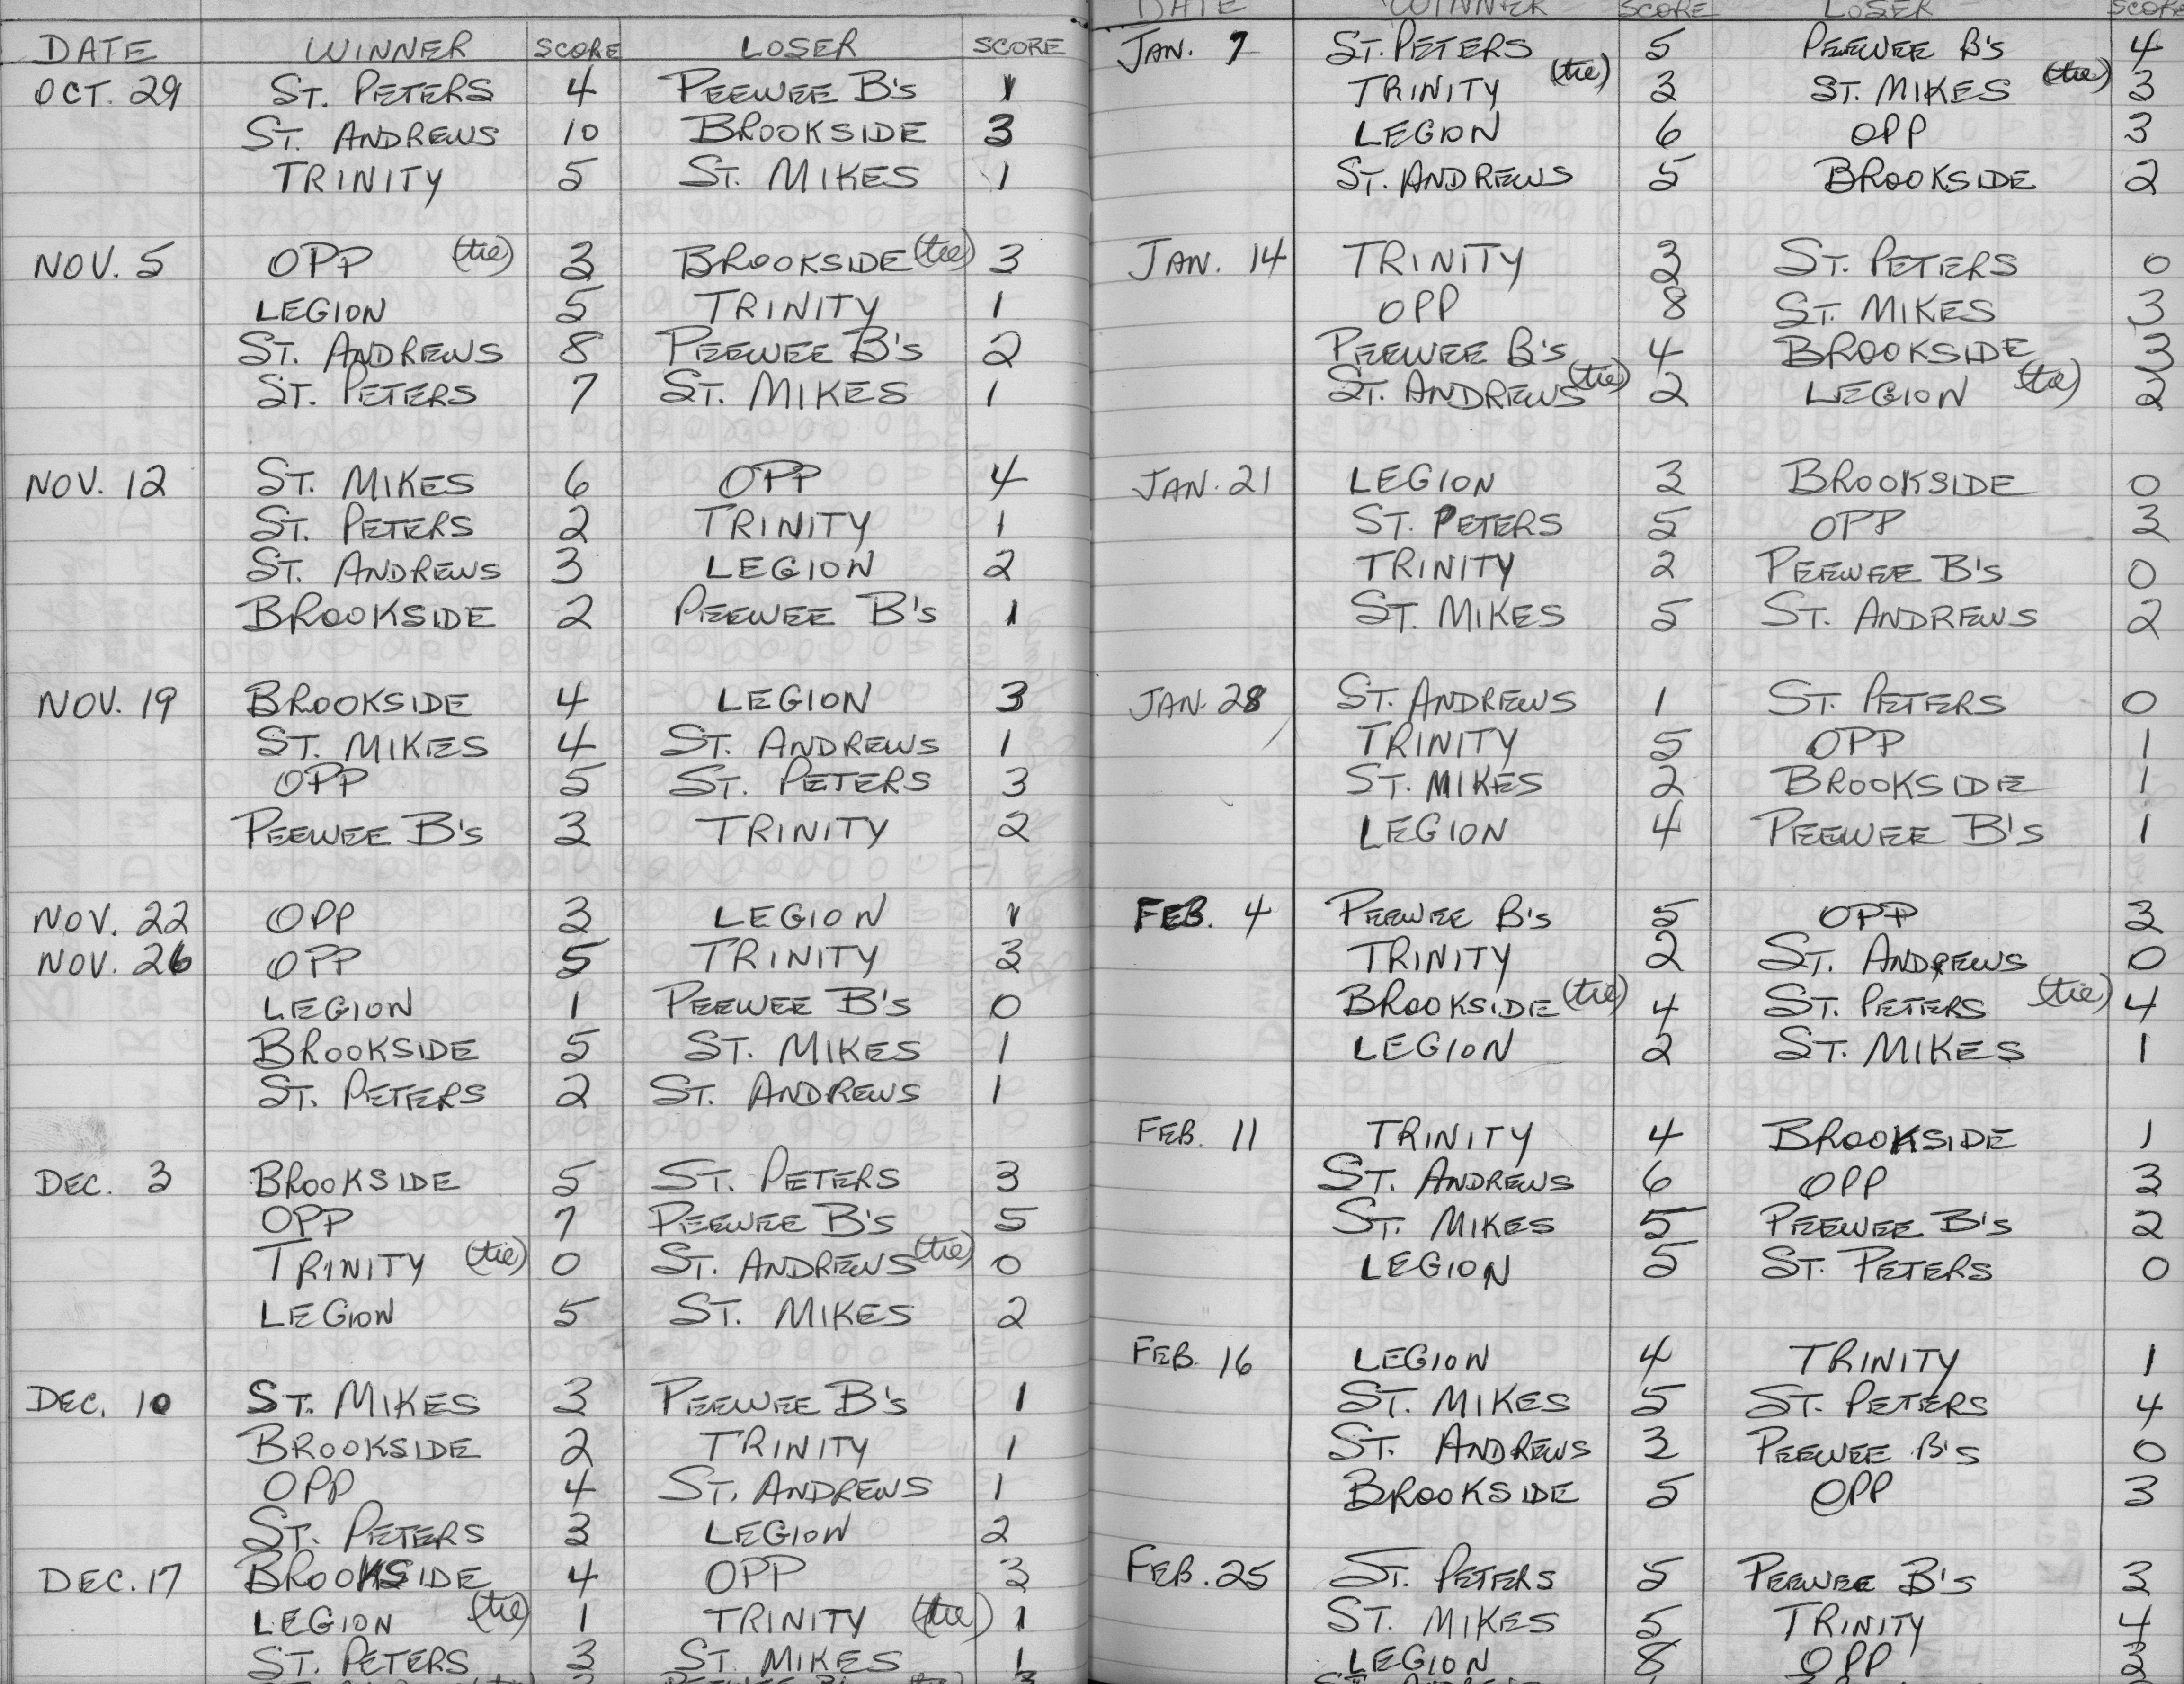 DATE WINNER SCORE LOSER SCORE
OCT. 29 ST. PETERS 4 PEEWEE B's 1
ST. ANDREWS 10 BROOKSIDE 3
TRINITY 5 ST. MIKES 1
NOV. 5 OPP (tie) 3 BROOKSIDE (tie) 3
LEGION 5 TRINITY 1
ST. ANDREWS 8 PEEWEE B's 2
ST. PETERS 7 ST. MIKES 1
NOV. 12 ST. MIKES 6 OPP 4
ST. PETERS 2 TRINITY 1
ST. ANDREWS 3 LEGION 2
BROOKSIDE 2 PEEWEE B's 1
NOV. 19 BROOKSIDE 4 LEGION 3
ST. MIKES 4 ST. ANDREWS 1
OPP 5 ST. PETERS 3
PEEWEE B's 3 TRINITY 2
NOV. 22 OPP 3 LEGION 1
NOV. 26 OPP 5 TRINITY 3
LEGION 1 PEEWEE B's 0
BROOKSIDE 5 ST. MIKES 1
ST. PETERS 2 ST. ANDREWS 1
DEC. 3 BROOKSIDE 5 ST. PETERS 3
OPP 7 PEEWEE B's 5
TRINITY (tie) 0 ST. ANDREWS (tie) 0
LEGION 5 ST. MIKES 2
DEC. 10 ST. MIKES 3 PEEWEE B's 1
BROOKSIDE 2 TRINITY 1
OPP 4 ST. ANDREWS 1
ST. PETERS 3 LEGION 2
DEC. 17 BROOKSIDE 4 OPP 3
LEGION (tie) 1 TRINITY (tie) 1
ST. PETERS 3 ST. MIKES 1
DATE WINNER SCORE LOSER SCORE
JAN. 7 ST. PETERS 5 PEEWEE B's 4
TRINITY (tie) 3 ST. MIKES (tie) 3
LEGION 6 OPP 3
ST. ANDREWS 5 BROOKSIDE 2
JAN. 14 TRINITY 3 ST. PETERS 0
OPP 8 ST. MIKES 3
PEEWEE B's 4 BROOKSIDE 3
ST. ANDREWS (tie) 2 LEGION (tie) 2
JAN. 21 LEGION 3 BROOKSIDE 0
ST. PETERS 5 OPP 3
TRINITY 2 PEEWEE B's 0
ST. MIKES 5 ST. ANDREWS 2
JAN. 28 ST. ANDREWS 1 ST. PETERS 0
TRINITY 5 OPP 1
ST. MIKES 2 BROOKSIDE 1
LEGION 4 PEEWEE B's 1
FEB. 4 PEEWEE B's 5 OPP 3
TRINITY 2 ST. ANDREWS 0
BROOKSIDE (tie) 4 ST. PETERS (tie) 4
LEGION 2 ST. MIKES 1
FEB. 11 TRINITY 4 BROOKSIDE 1
ST. ANDREWS 6 OPP 3
ST. MIKES 5 PEEWEE B's 2
LEGION 5 ST. PETERS 0
FEB. 16 LEGION 4 TRINITY 1
ST. MIKES 5 ST. PETERS 4
ST. ANDREWS 3 PEEWEE B's 0
BROOKSIDE 5 OPP 3
FEB. 25 ST. PETERS 5 PEEWEE B's 3
ST. MIKES 5 TRINITY 4
LEGION 8 OPP 2